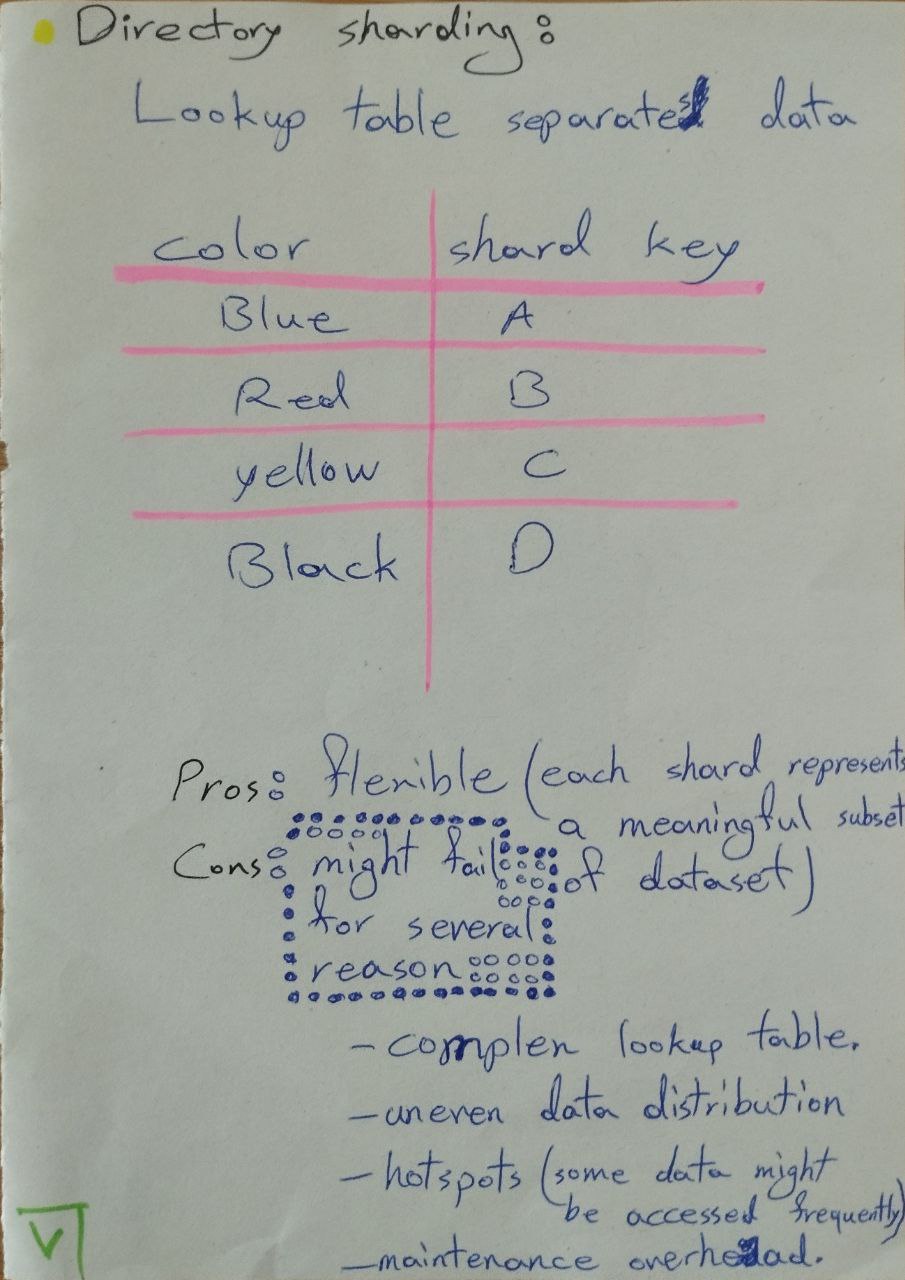 • Directory sharding:
Lookup table separates data
color | shard key
Blue | A
Red | B
yellow | C
Black | D
Pros: flexible (each shard represents
a meaningful subset
of dataset)
Cons: might fail
for several
reason
- complex lookup table.
- uneven data distribution
- hotspots (some data might
be accessed frequently)
- maintenance overhead.
V